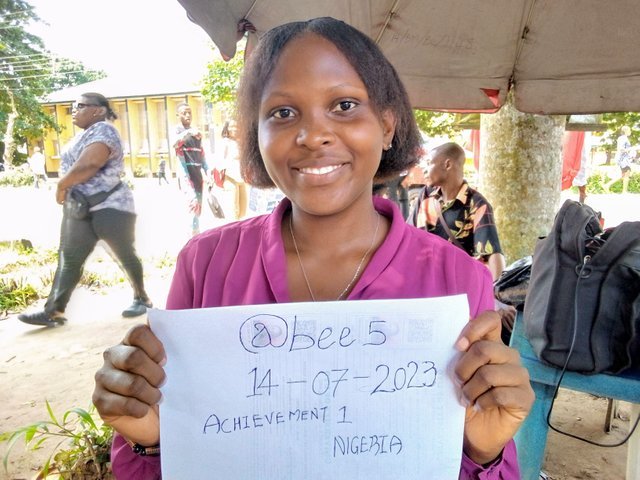 @bee5
14-07-2023
ACHIEVEMENT 1
NIGERIA